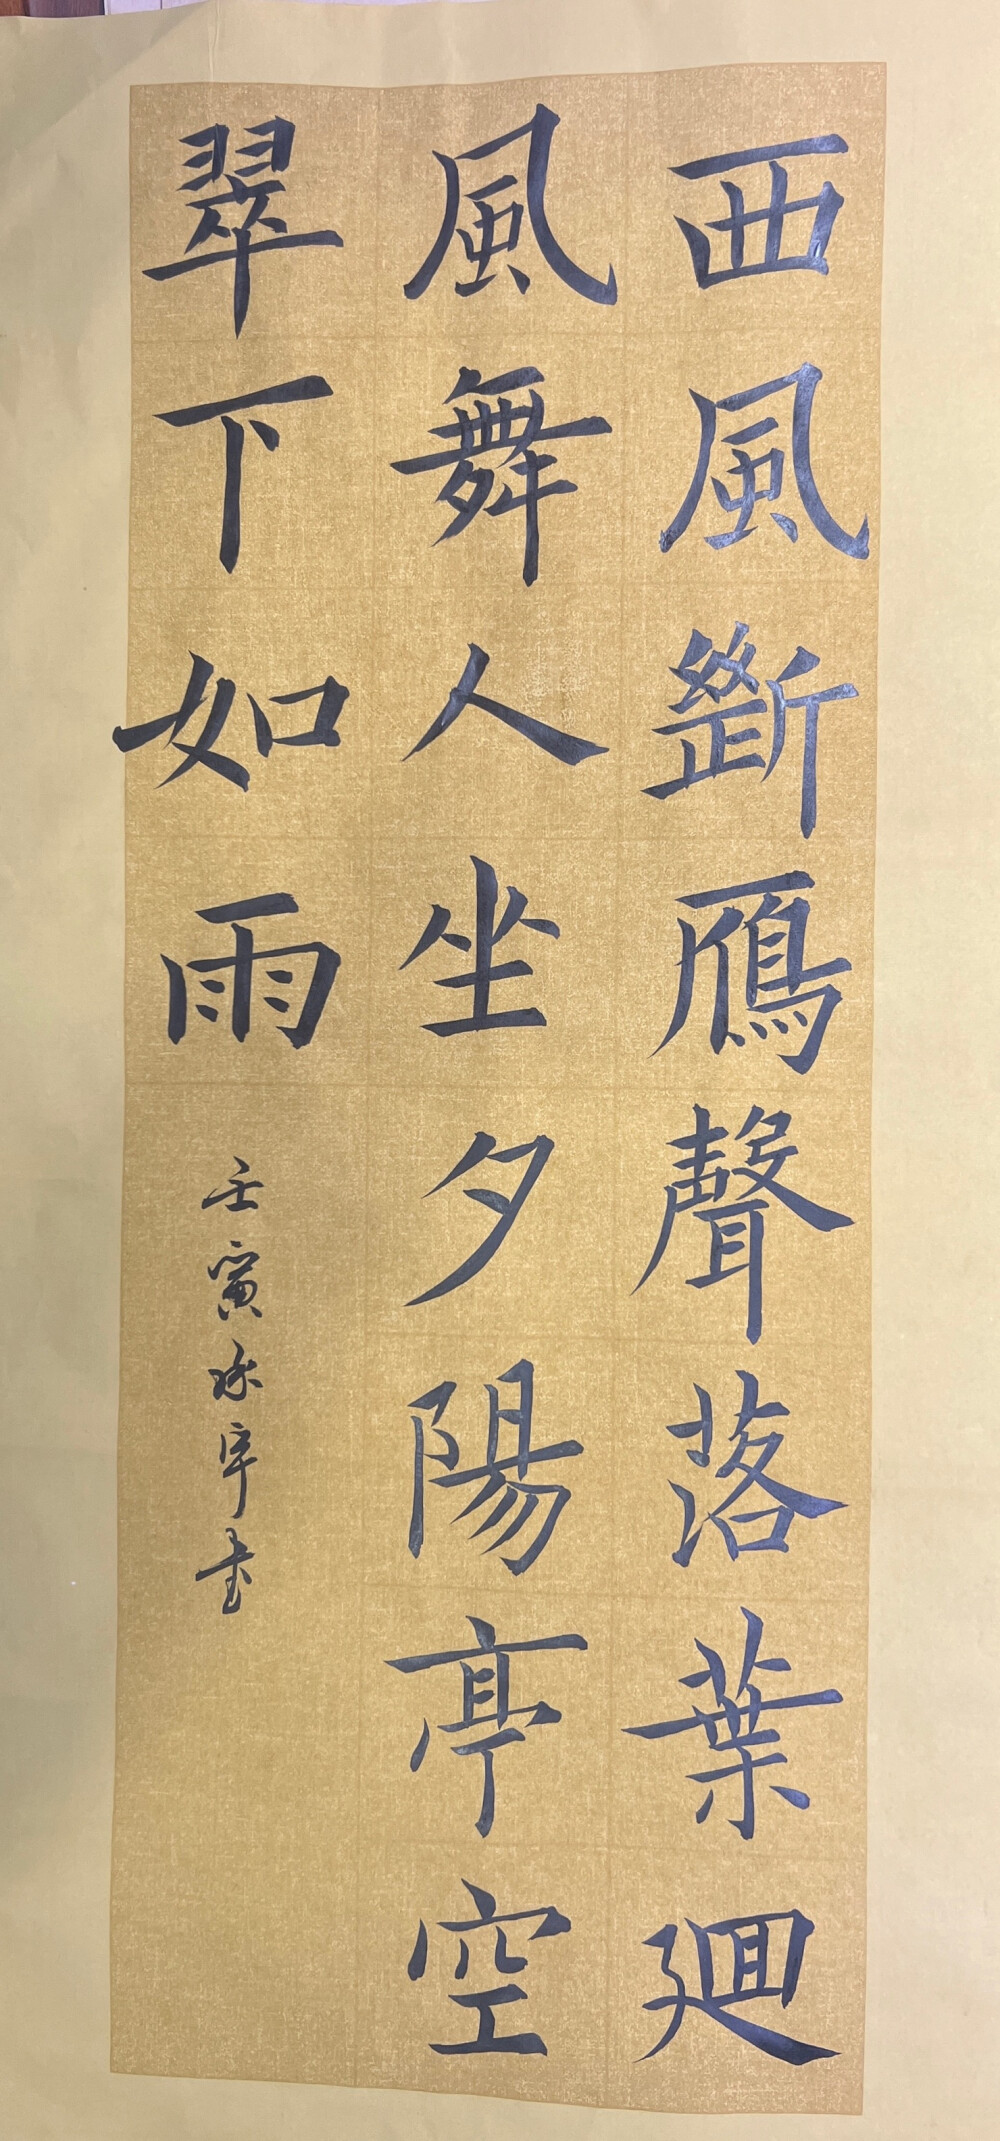 西風斷鴈聲落葉廻
風舞人坐夕陽亭空
翠下如雨
壬寅宇書